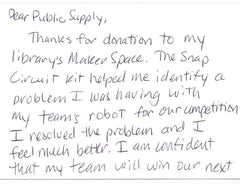 Dear Public Supply,
Thanks for donation to my
library's Maker Space. The Snap
Circuit kit helped me identify a
problem I was having with
my team's robot for our competition
I resolved the problem and I
feel much better. I am confident
that my team will win our next